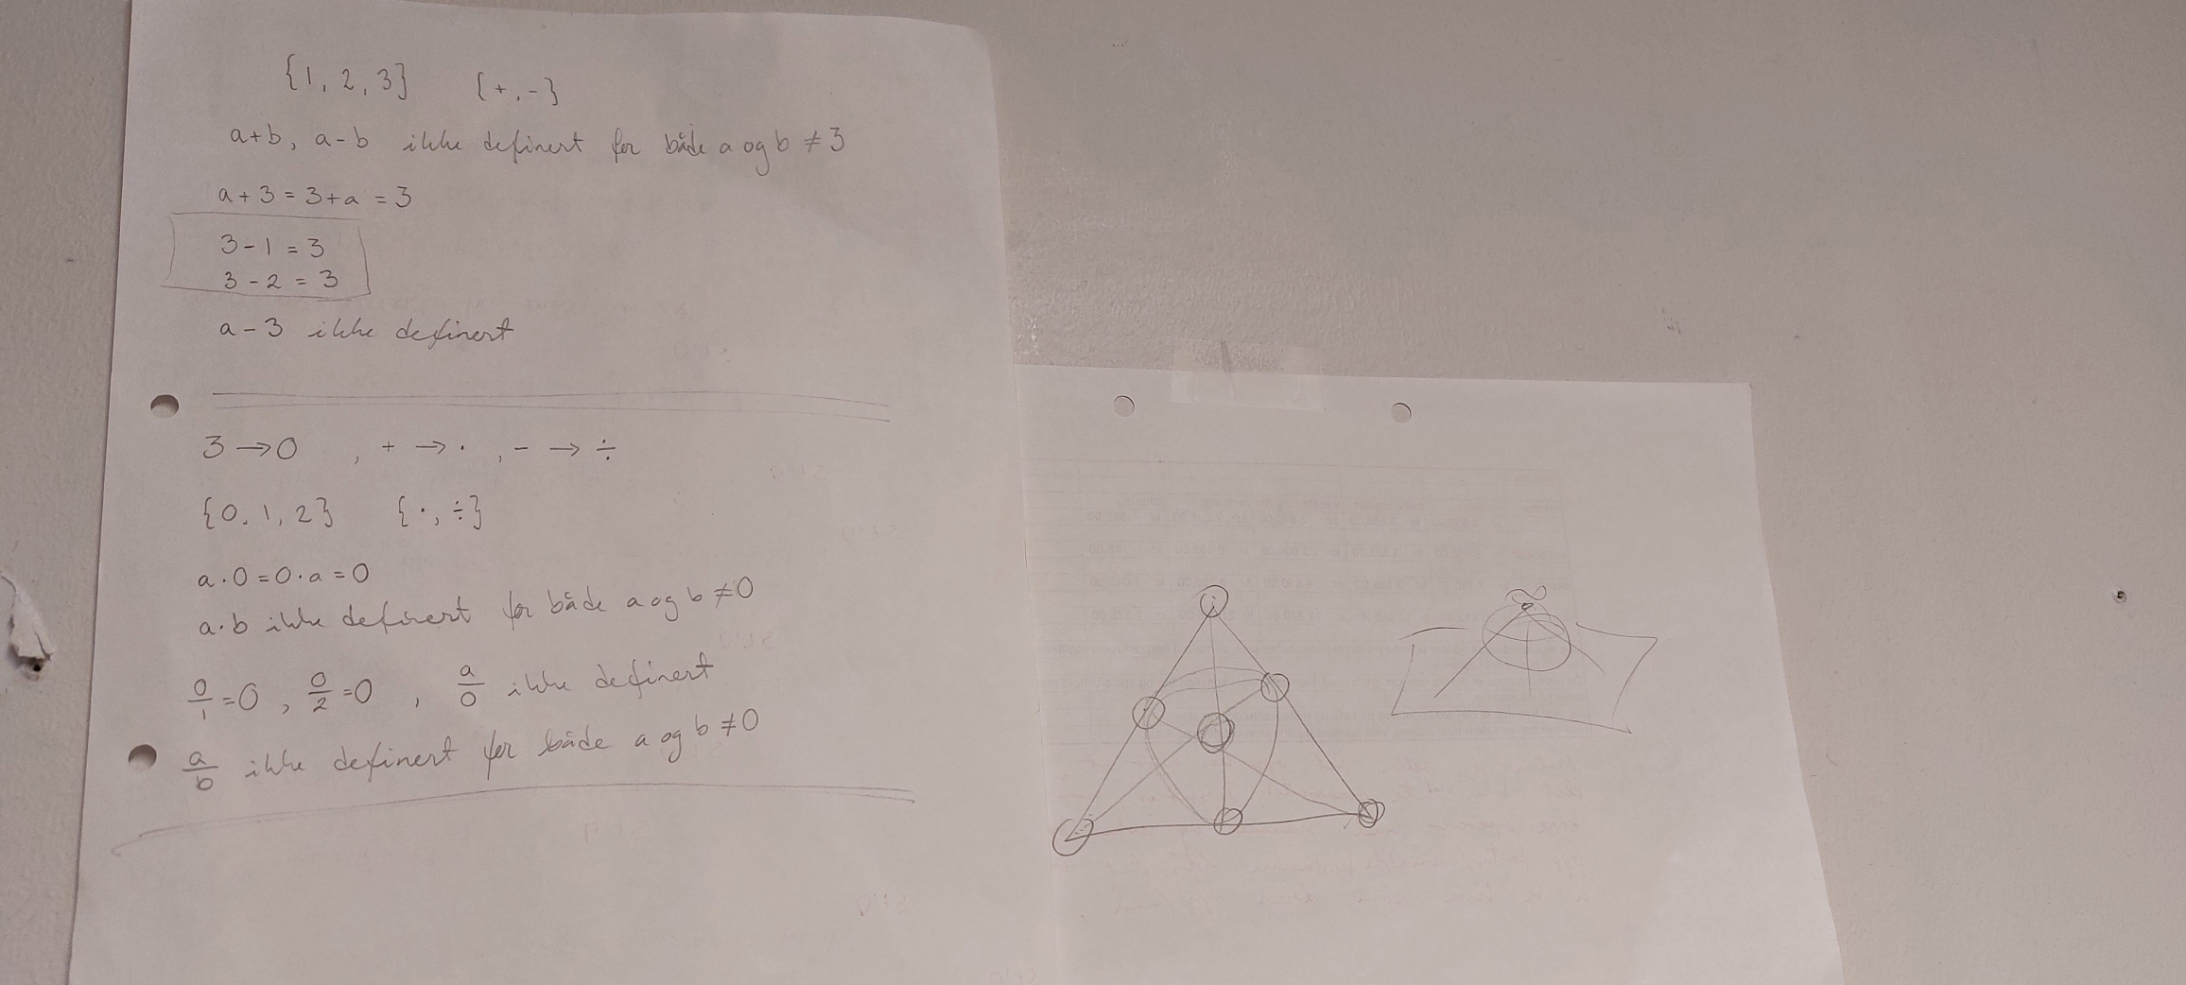 {1, 2, 3} {+, -}
a+b, a-b ikke definert for både a og b ≠ 3
a + 3 = 3 + a = 3
3 - 1 = 3
3 - 2 = 3
a - 3 ikke definert
3 → 0 , + → · , - → ÷
{0, 1, 2} {·, ÷}
a · 0 = 0 · a = 0
a · b ikke definert for både a og b ≠ 0
0/1 = 0 , 0/2 = 0 , a/0 ikke definert
a/b ikke definert for både a og b ≠ 0
∞